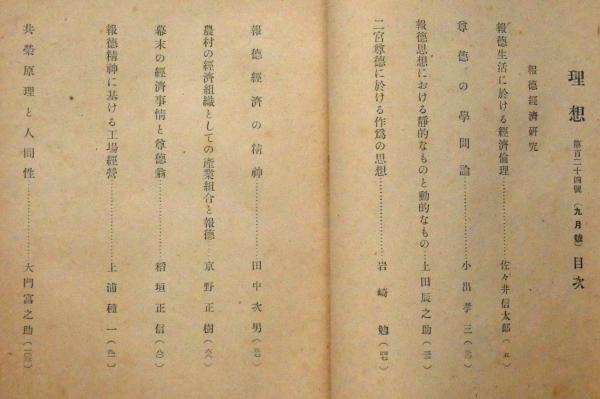 理想 第百二十四號 (九月號) 目次
報德經濟研究
報德生活に於ける經濟倫理…………佐々井信太郎(五)
尊德の學問論…………小出孝三
報德思想における靜的なものと動的なもの…上田辰之助
二宮尊德に於ける作爲の思想…………岩崎勉
報德經濟の精神…………田中次男
農村の經濟組織としての產業組合と報德…………京野正樹
幕末の經濟事情と尊德翁…………稻垣正信
報德精神に基ける工場經營…………上浦種一
共榮原理と人間性…………大門富之助